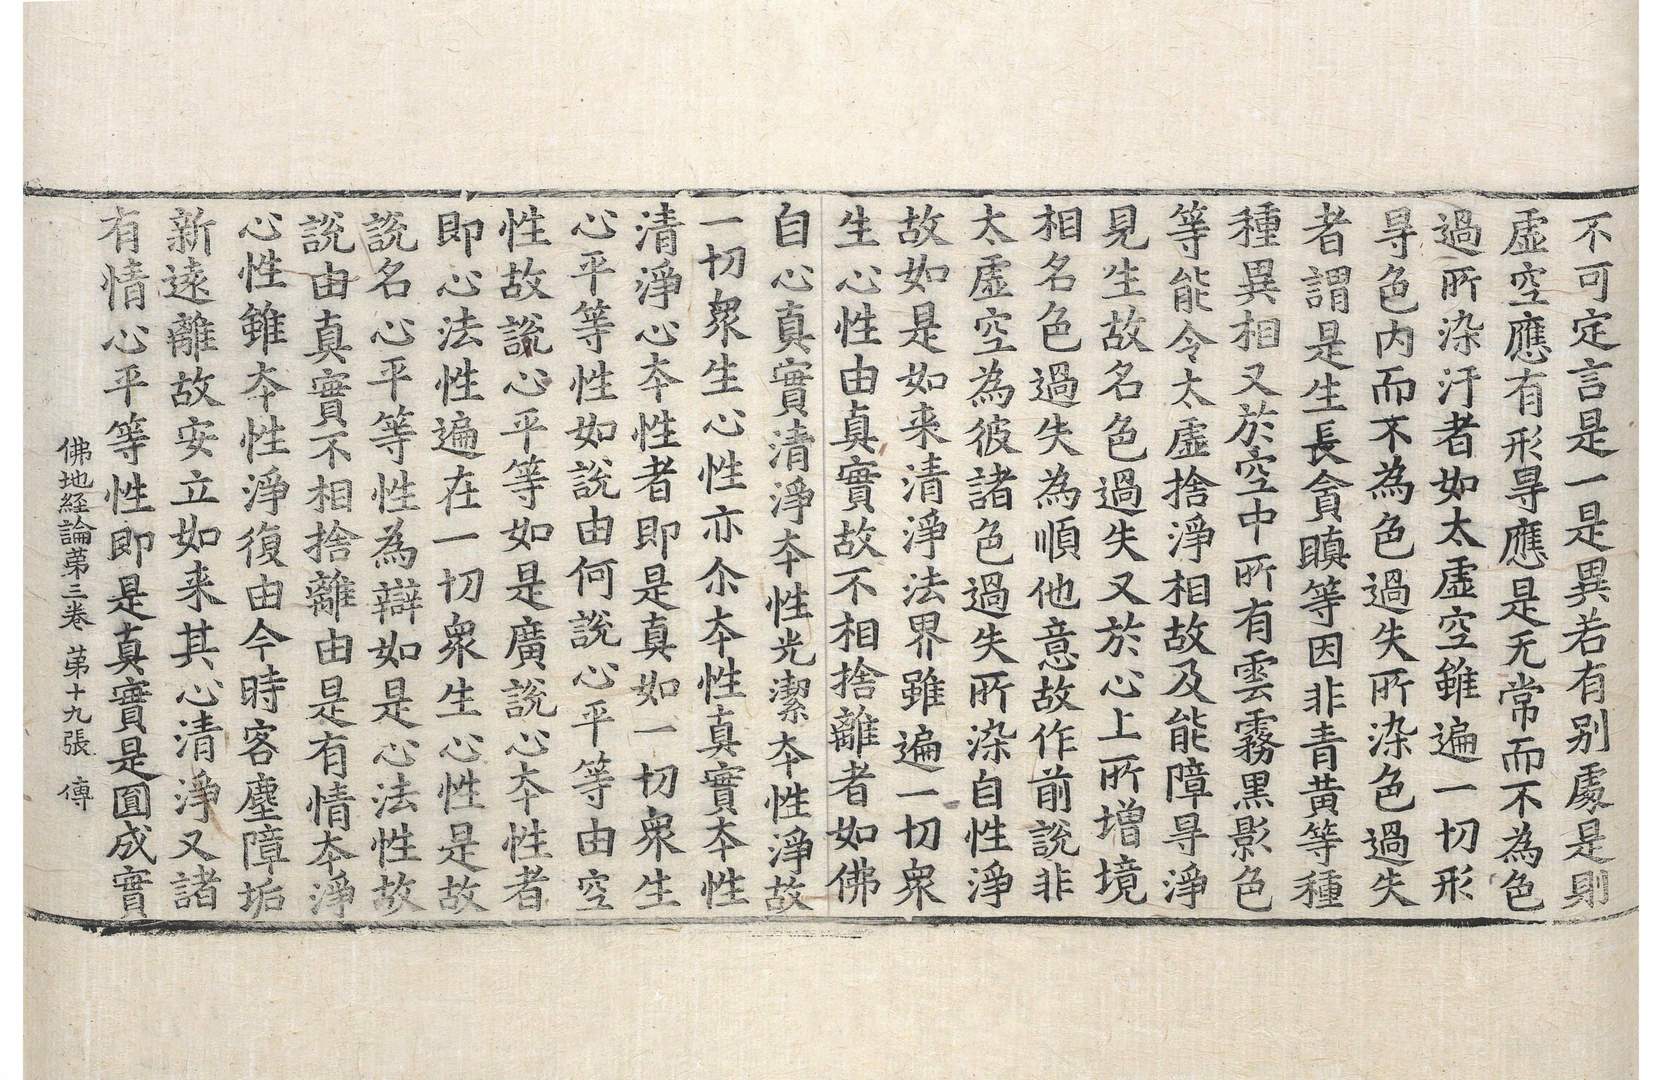 不可定言是一是異若有别處是則
虛空應有形㝵應是无常而不為色
過所染汙者如太虛空雖遍一切形
㝵色内而不為色過失所染色過失
者謂是生長貪瞋等因非青黄等種
種異相又於空中所有雲霧黒影色
等能令太虛捨淨相故及能障㝵淨
見生故名色過失又於心上所增境
相名色過失為順他意故作前說非
太虛空為彼諸色過失所染自性淨
故如是如来清淨法界雖遍一切衆
生心性由真實故不相捨離者如佛
自心真實清淨夲性光潔夲性淨故
一切衆生心性亦尒夲性真實夲性
清淨心夲性者即是真如一切衆生
心平等性如說由何說心平等由空
性故說心平等如是廣說心夲性者
即心法性遍在一切衆生心性是故
說名心平等性為辯如是心法性故
說由真實不相捨離由是有情夲淨
心性雖夲性淨復由今時客塵障垢
新遠離故安立如来其心清淨又諸
有情心平等性即是真實是圓成實
佛地経論苐三卷 苐十九張 傳